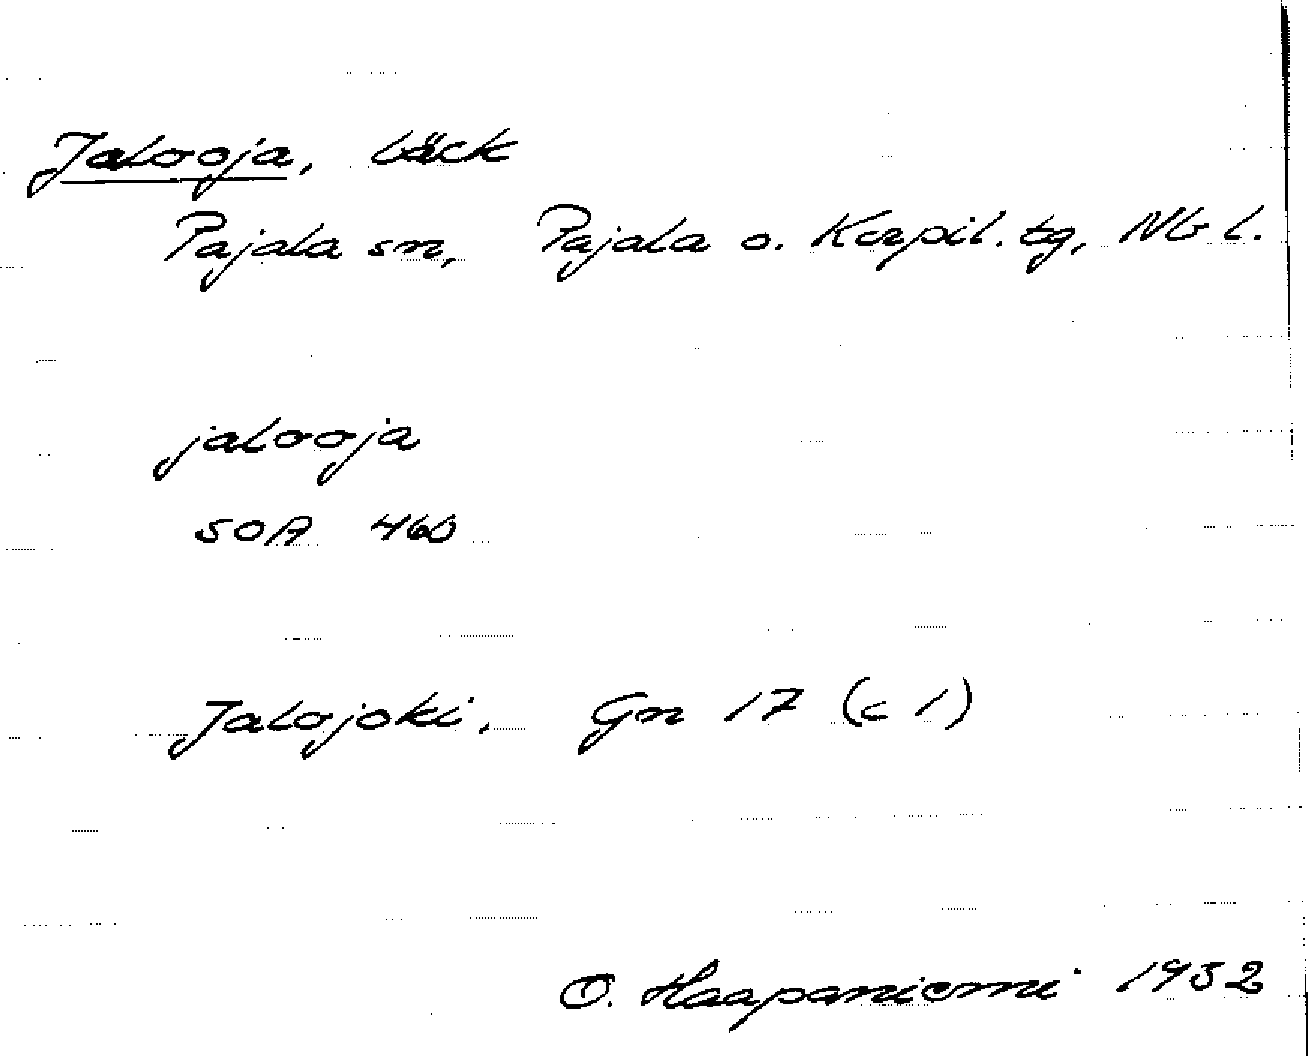 Jalooja, bäck
Pajala sn, Pajala o. Korpil. tg, Nb l.
jalooja
SOA 460
Jalojoki. Gn 17 (c 1)
O. Haapaniemi 1932